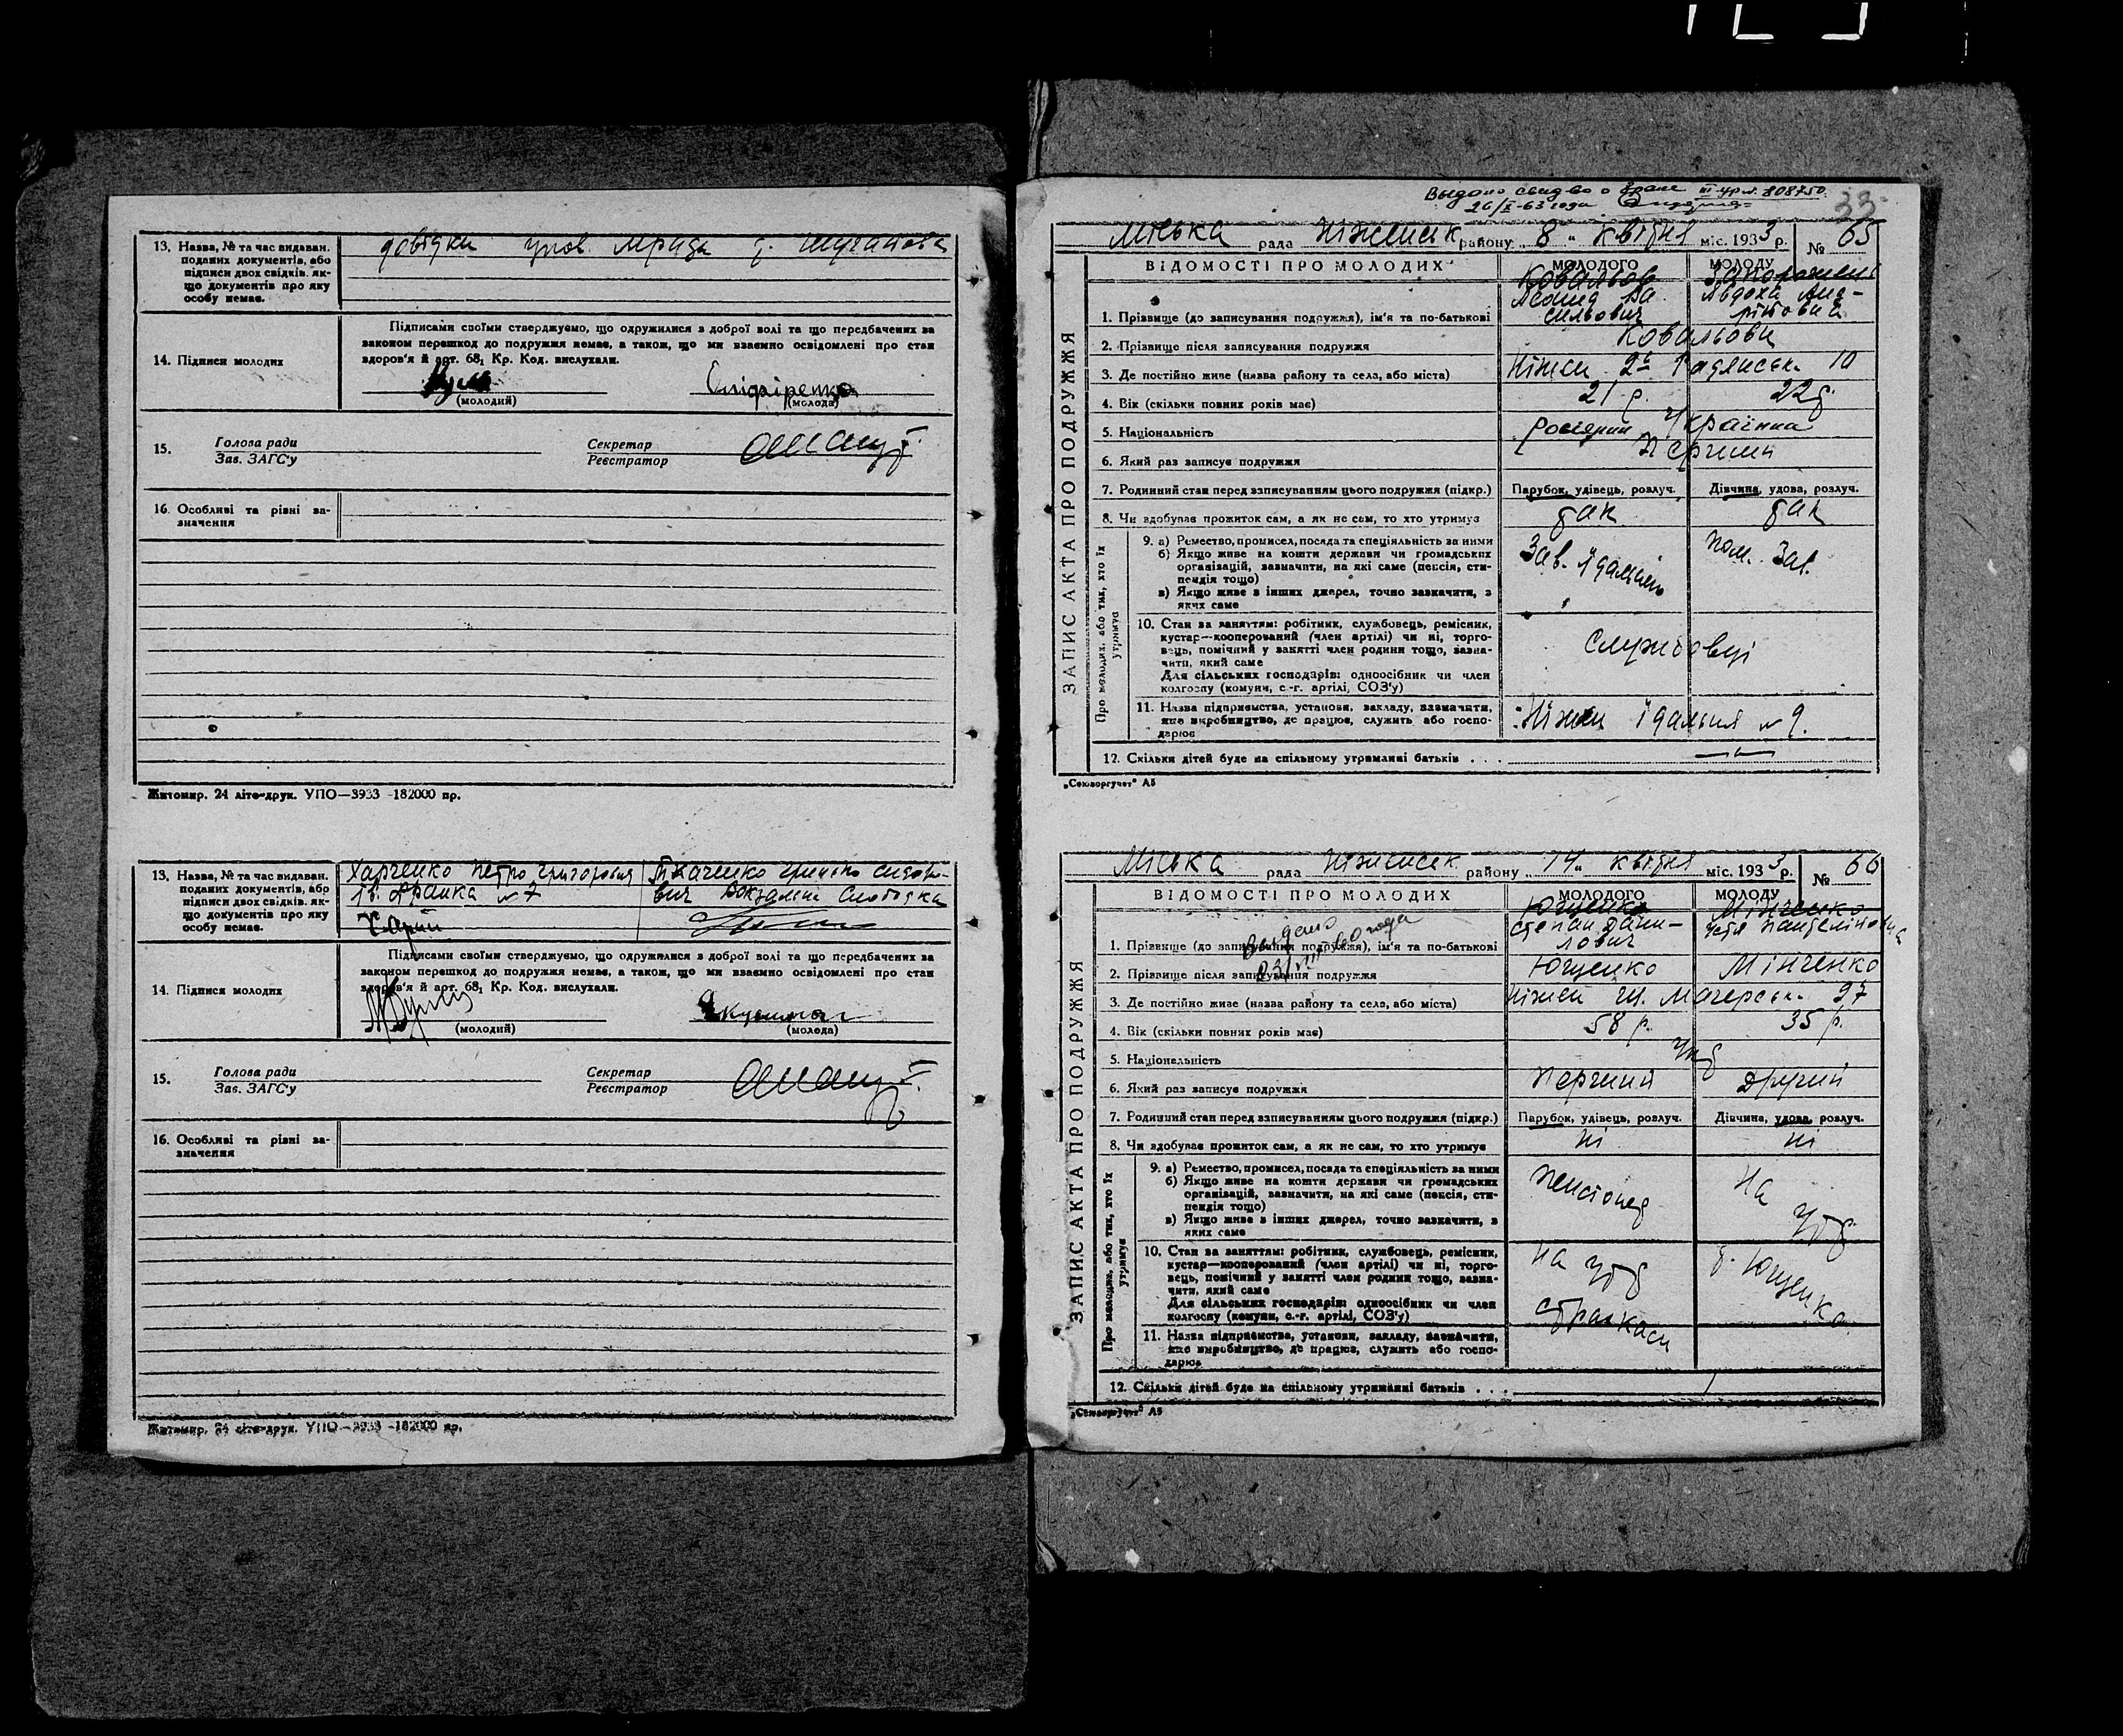 13. Назва, № та час видаван.
поданих документів, або
підписи двох свідків, як-
що документів про яку
особу немає.
довідки
14. Підписи молодих
Підписами своїми стверджуємо, що одружилися з доброї волі та що передбачених за
законом перешкод до подружжя немає, а також, що ми взаємно освідомлені про стан
здоров'я й арт. 68₁ Кр. Код. вислухали.
(молодий) (молода)
15. Голова ради Секретар
Зав. ЗАГС'у Реєстратор
16. Особливі та різні за-
значення
Житомир. 24 літо-друк. УПО—3933 -182000 пр.
13. Назва, № та час видаван.
поданих документів, або
підписи двох свідків, як-
що документів про яку
особу немає.
Харченко Петро Григорович Ткаченко Гринько Сидоро-
Ів. Франка №7 вич Вокзальна Слобідка
14. Підписи молодих
Підписами своїми стверджуємо, що одружилися з доброї волі та що передбачених за
законом перешкод до подружжя немає, а також, що ми взаємно освідомлені про стан
здоров'я й арт. 68₁ Кр. Код. вислухали.
(молодий) (молода)
15. Голова ради Секретар
Зав. ЗАГС'у Реєстратор
16. Особливі та різні за-
значення
Житомир. 24 літо-друк. УПО—3933 -182000 пр.
Выдано свид-во о браке 808750
26/X-63 года
33
Міська рада Ніженськ району „8" квітня міс. 1933 р. № 65
ВІДОМОСТІ ПРО МОЛОДИХ МОЛОДОГО МОЛОДУ
ЗАПИС АКТА ПРО ПОДРУЖЖЯ
Про молодих, або тих, хто їх утримує
1. Прізвище (до записування подружжя), ім'я та по-батькові
Ковальов Леонид Ва
сильович
Авдоха Анд-
2. Прізвище після записування подружжя Ковальови
3. Де постійно живе (назва району та села, або міста) Ніжен 2а Радянськ. 10
4. Вік (скільки повних років має) 21 р. 22 р.
5. Національність Росіянин Українка
6. Який раз записує подружжя Перший
7. Родинний стан перед записуванням цього подружжя (підкр.) Парубок, удівець, розлуч. Дівчина, удова, розлуч.
8. Чи здобуває прожиток сам, а як не сам, то хто утримує так так
9. а) Ремество, промисел, посада та спеціяльність за ними
б) Якщо живе на кошти держави чи громадських
організацій, зазначити, на які саме (пенсія, сти-
пендія тощо)
в) Якщо живе з інших джерел, точно зазначити, з
яких саме
Зав. їдальнь пом. зав.
10. Стан за заняттям: робітник, службовець, ремісник,
кустар—кооперований (член артілі) чи ні, торго-
вець, помічний у занятті член родини тощо, зазна-
чити, який саме
Для сільських господарів: одноосібник чи член
колгоспу (комуни, с.-г. артілі, СОЗ'у)
Службовці
11. Назва підприємства, установи, закладу, зазначити,
яке виробництво, де працює, служить або госпо-
дарює
Ніжен їдальня №9.
12. Скільки дітей буде на спільному утриманні батьків . . .
„Союзоргучет" А5
Міська рада Ніженськ району „14" квітня міс. 1933 р. № 66
ВІДОМОСТІ ПРО МОЛОДИХ МОЛОДОГО МОЛОДУ
ЗАПИС АКТА ПРО ПОДРУЖЖЯ
Про молодих, або тих, хто їх утримує
Выдано
23/VIII 60 года
1. Прізвище (до записування подружжя), ім'я та по-батькові
Ющенко
Степан Дани-
лович
Мінченко
Устя Пантелімовна
2. Прізвище після записування подружжя Ющенко Мінченко
3. Де постійно живе (назва району та села, або міста) Ніжен Ш. Магерськ. 27
4. Вік (скільки повних років має) 58 р. 35 р.
5. Національність Укр
6. Який раз записує подружжя Перший Другий
7. Родинний стан перед записуванням цього подружжя (підкр.) Парубок, удівець, розлуч. Дівчина, удова, розлуч.
8. Чи здобуває прожиток сам, а як не сам, то хто утримує ні ні
9. а) Ремество, промисел, посада та спеціяльність за ними
б) Якщо живе на кошти держави чи громадських
організацій, зазначити, на які саме (пенсія, сти-
пендія тощо)
в) Якщо живе з інших джерел, точно зазначити, з
яких саме
Пенсіонер На утр.
10. Стан за заняттям: робітник, службовець, ремісник,
кустар—кооперований (член артілі) чи ні, торго-
вець, помічний у занятті член родини тощо, зазна-
чити, який саме
Для сільських господарів: одноосібник чи член
колгоспу (комуни, с.-г. артілі, СОЗ'у)
На утр страхкаси г. Ющенка
11. Назва підприємства, установи, закладу, зазначити,
яке виробництво, де працює, служить або госпо-
дарює
12. Скільки дітей буде на спільному утриманні батьків . . .
„Союзоргучет" А5